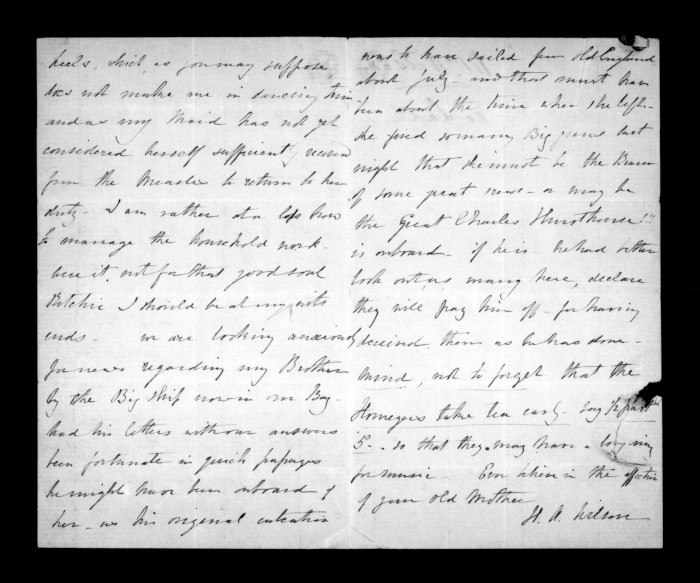 heels. which, as you may suppose
does not make me in dancing trim
and as my Maid has not yet
considered herself sufficiently recovered
from the Measles to return to her
duty - I am rather at a loss how
to manage the household work.
were it not for that good soul
Ritchie I should be at my wits
ends - we are looking anxiously
for news regarding my Brother
by the Big Ship now in our Bay -
had his letters with our answers
been fortunate in quick passages
he might have been onboard of
her - as his original intention
was to have sailed from Old England
about July - and that must have
been about the time when she left -
she fired so many Big guns last
night that she must be the Bearer
of some great news - or may be
the Great Charles Hursthouse!!!
is onboard - if he is - he had better
look out as many here, declare
they will pay him off - for having
deceived them as he has done -
Mind, not to forget that the
take tea early - say ½ past
5 - so that they may have a long
for music - Ever believe in the affection
of your Old Mother
H. A. Wilson